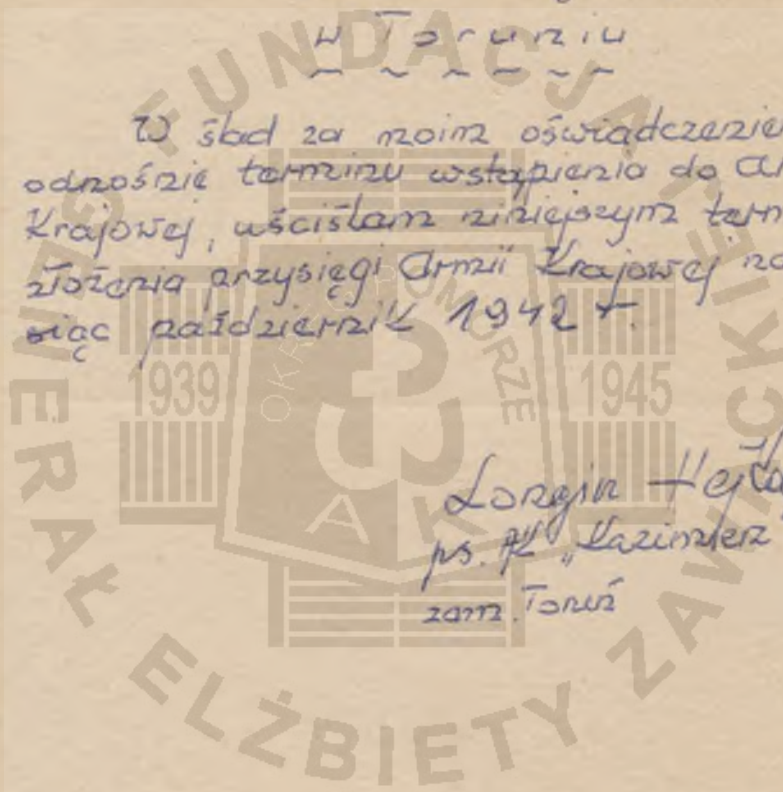 w Toruniu
W ślad za moim oświadczenie
odnośnie terminu wstąpienia do Ar
Krajowej, uściślam niniejszym term
złożenia przysięgi Armii Krajowej na
siąc październik 1942 r.
Longin Hejka
ps. AK "Kazimierz
zam. Toruń
FUNDACJA GENERAŁ ELŻBIETY ZAWACKIEJ
OKRĘG POMORZE
1939 1945
AK